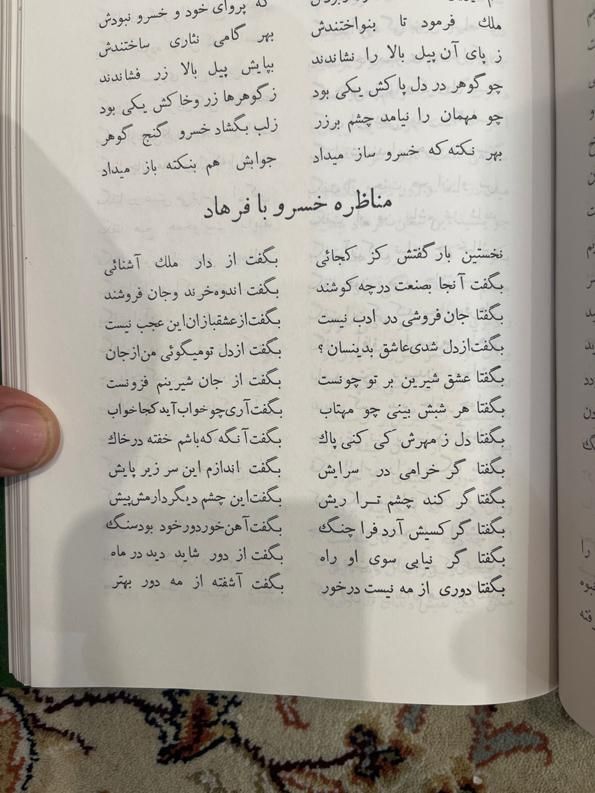 که پروای خود و خسرو نبودش
ملك فرمود تا بنواختندش بهر گامی نثاری ساختندش
ز پای آن پیل بالا را نشاندند بپایش پیل بالا زر فشاندند
چو گوهر در دل پاکش یکی بود زگوهرها زر وخاکش یکی بود
چو مهمان را نیامد چشم برزر زلب بگشاد خسرو گنج گوهر
بهر نکته که خسرو ساز میداد جوابش هم بنکته باز میداد
مناظره خسرو با فرهاد
نخستین بار گفتش کز کجائی بگفت از دار ملك آشنائی
بگفت آنجا بصنعت درچه کوشند بگفت اندوه‌خرند وجان فروشند
بگفتا جان‌فروشی در ادب نیست بگفت‌ازعشقبازان‌این عجب نیست
بگفت‌ازدل شدی‌عاشق بدینسان ؟ بگفت ازدل تومیگوئی من‌ازجان
بگفتا عشق شیرین بر تو چونست بگفت از جان شیرینم فزونست
بگفتا هر شبش بینی چو مهتاب بگفت‌آری‌چو‌خواب‌آید‌کجا‌خواب
بگفتا دل ز مهرش کی کنی پاك بگفت‌آنگه که‌باشم خفته درخاك
بگفتا گر خرامی در سرایش بگفت اندازم این سر زیر پایش
بگفتا گر کند چشم تــرا ریش بگفت‌این چشم دیگردارمش‌پیش
بگفتا گر کسیش آرد فرا چنگ بگفت‌آهن‌خوردورخود بودسنگ
بگفتا گر نیابی سوی او راه بگفت از دور شاید دید در ماه
بگفتا دوری از مه نیست درخور بگفت آشفته از مه دور بهتر